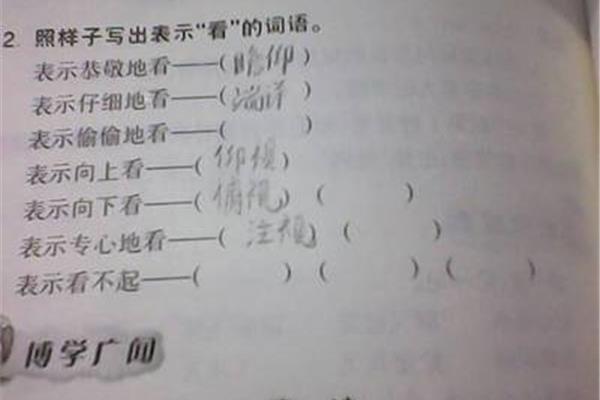 2. 照样子写出表示“看”的词语。
表示恭敬地看——(瞻仰)
表示仔细地看——(端详)
表示偷偷地看——(　　)
表示向上看——(仰视)
表示向下看——(俯视)(　　)
表示专心地看——(注视)(　　)
表示看不起——(　　)(　　)(　　)
博学广闻